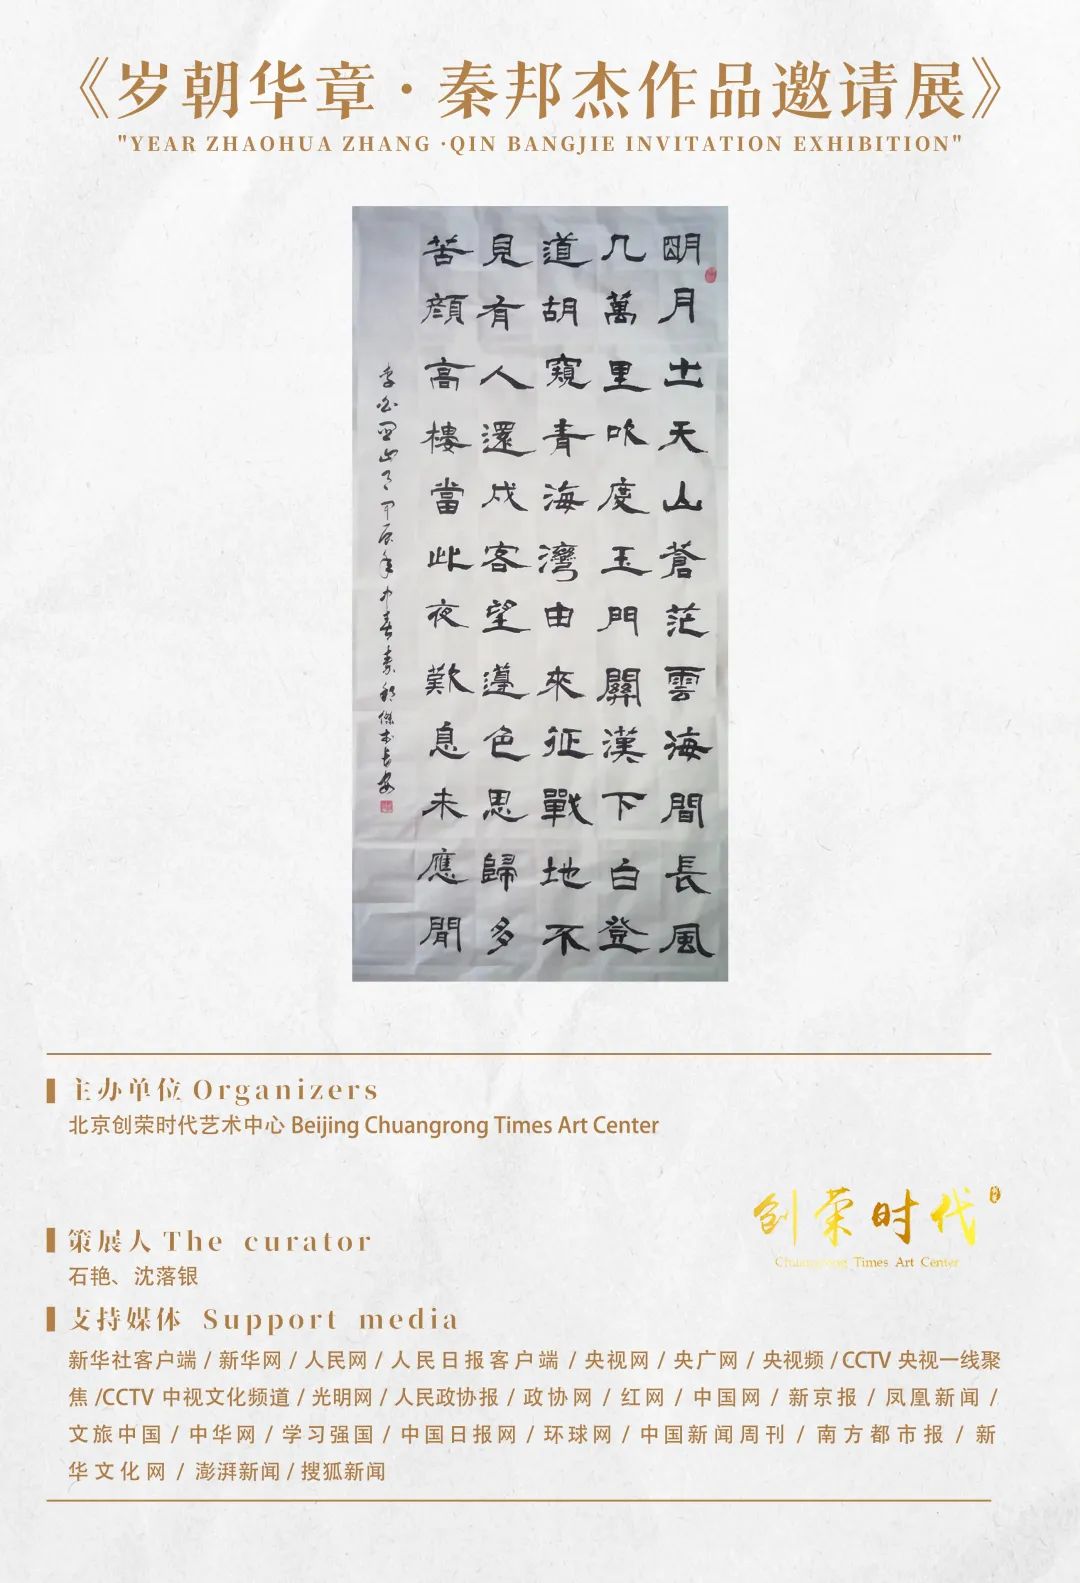 《岁朝华章·秦邦杰作品邀请展》
"YEAR ZHAOHUA ZHANG ·QIN BANGJIE INVITATION EXHIBITION"
明月士天山蒼茫雲海間長風
几萬里吹度玉門關漢下白登
道胡窺青海灣由來征戰地不
見有人還戍客望邊色思歸多
苦顔高樓當此夜歎息未應閒
李白關山月甲辰年中春秦邦傑书長安
主办单位 Organizers
北京创荣时代艺术中心 Beijing Chuangrong Times Art Center
创荣时代
Chuangrong Times Art Center
策展人 The curator
石艳、沈落银
支持媒体 Support media
新华社客户端 / 新华网 / 人民网 / 人民日报客户端 / 央视网 / 央广网 / 央视频 / CCTV 央视一线聚
焦 /CCTV 中视文化频道 / 光明网 / 人民政协报 / 政协网 / 红网 / 中国网 / 新京报 / 凤凰新闻 /
文旅中国 / 中华网 / 学习强国 / 中国日报网 / 环球网 / 中国新闻周刊 / 南方都市报 / 新
华文化网 / 澎湃新闻 / 搜狐新闻